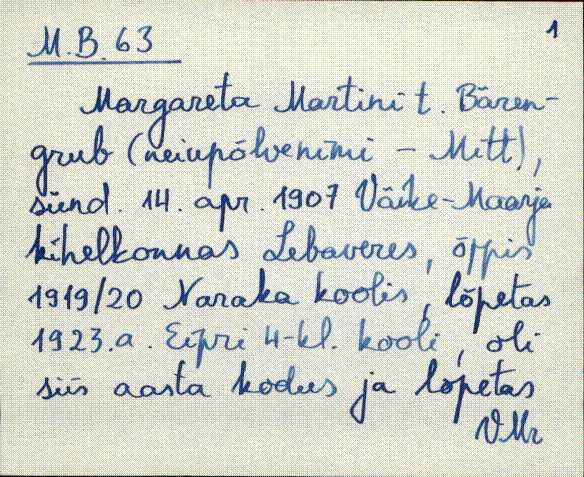 1
M.B. 63
Margareta Martini t. Bären-
grub (neiupõlvenimi – Mitt),
sünd. 14. apr. 1907 Väike-Maarja
kihelkonnas Lebaveres, õppis
1919/20 Naraka koolis, lõpetas
1923.a. Eipri 4-kl. kooli, oli
siis aasta kodus ja lõpetas
VMr